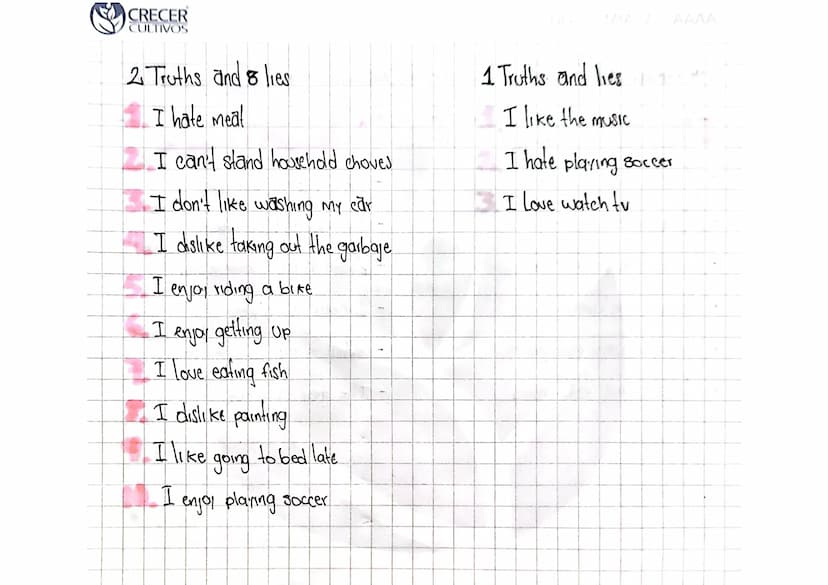 CRECER
CULTIVOS
2 Truths and 8 lies
1. I hate meal
2. I can't stand household choves
3. I don't like washing my car
4. I dislike taking out the garbage
5. I enjoy riding a bike
6. I enjoy getting up
7. I love eating fish
8. I dislike painting
9. I like going to bed late
10. I enjoy playing soccer
1 Truths and lies
1. I like the music
2. I hate playing soccer
3. I love watch tv